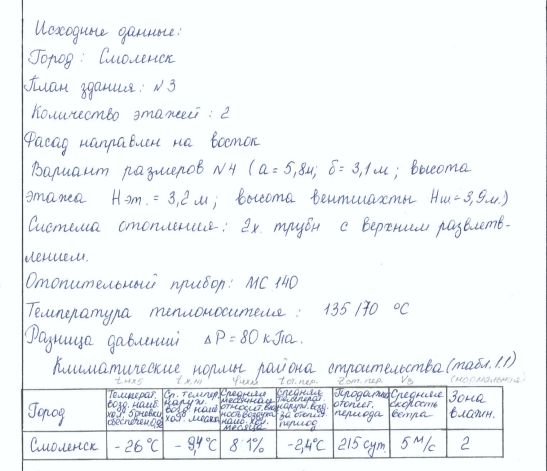 Исходные данные:
Город: Смоленск
План здания: №3
Количество этажей: 2
Фасад направлен на восток
Вариант размеров №4 (а=5,8м; б=3,1м; высота
этажа Нэт.=3,2м; высота вентшахты Нш=3,9м.)
Система отопления: 2х. трубн с верхним разветв-
лением.
Отопительный прибор: МС 140
Температура теплоносителя: 135/70 °С
Разница давлений ΔР=80кПа.
Климатические нормы района строительства (табл. 1.1)
tнх5 tх.м от.пер. Zот.пер Vв (нормальная)
Город Температ. возд. наиб. хол. 5дневки Ср. темпер. наружн. возд. наиб. хол. месяца Средняя месячная относит. вл. воздуха наиб. хол. месяца Средняя температ. наружн. возд. за отоп. период Продолжит. отопит. периода Средняя скорость ветра Зона влажн.
Смоленск -26°С -9,4°С 81% -2,4°С 215сут 5м/с 2